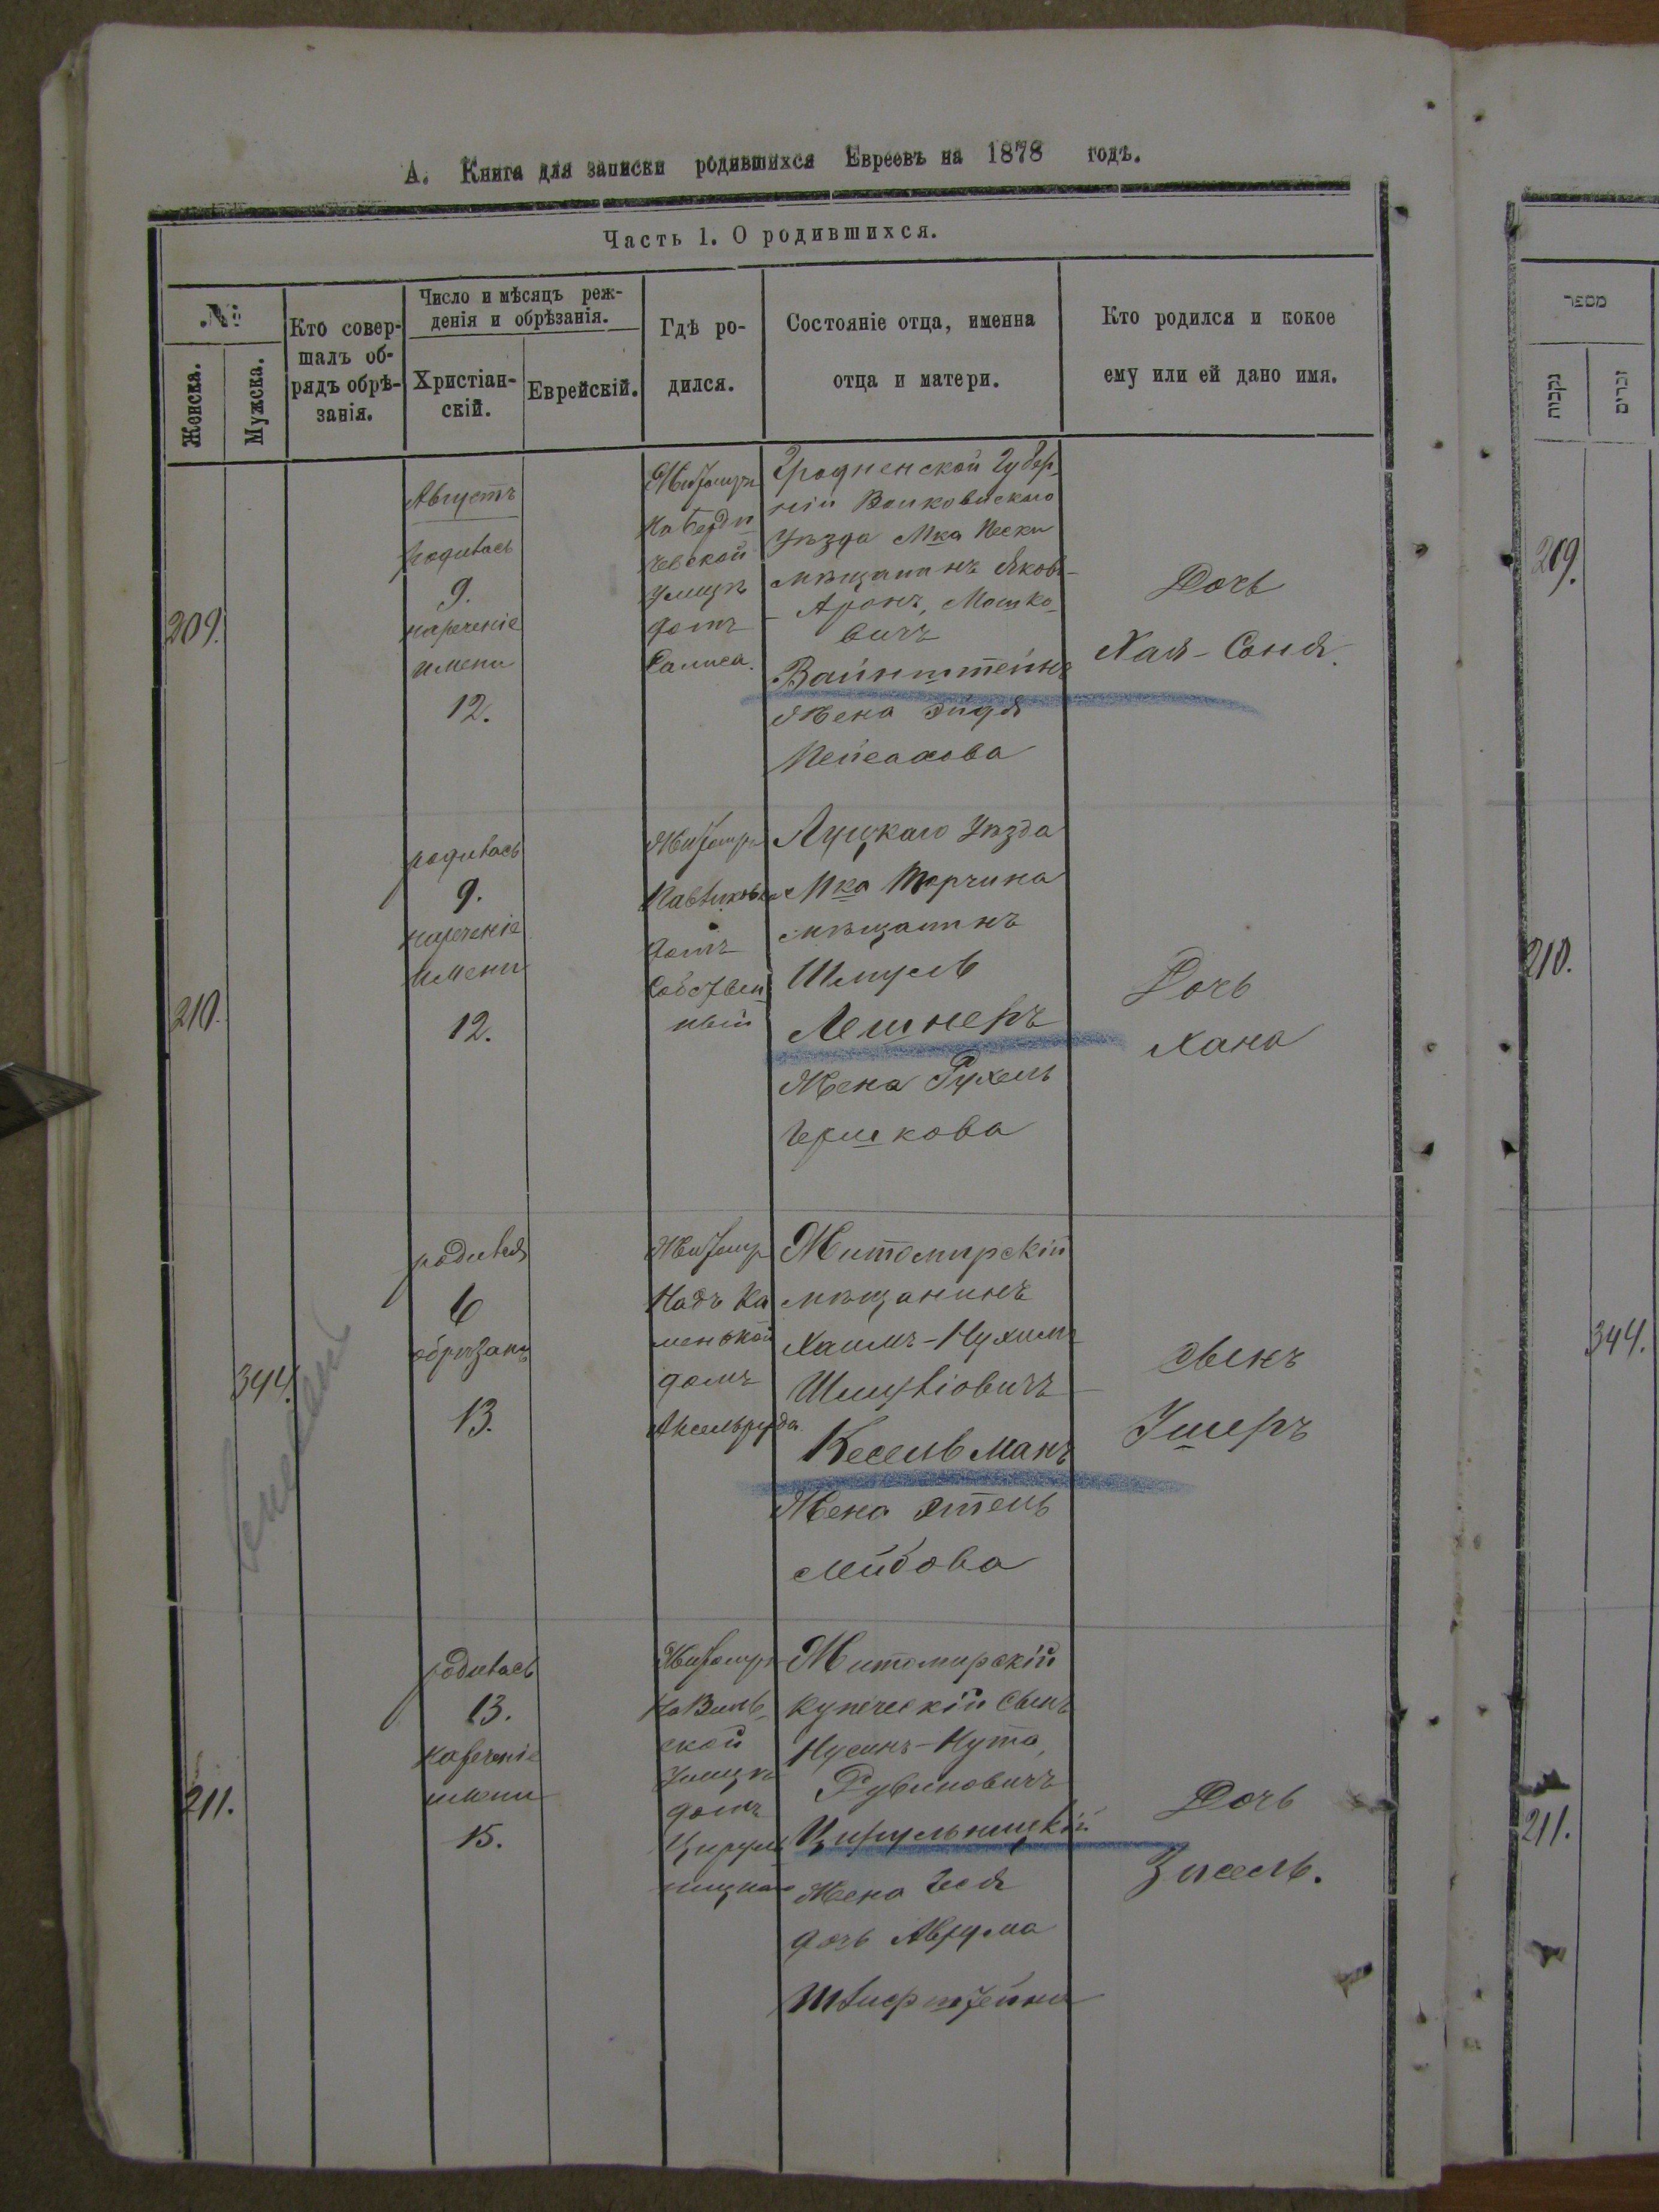 А. Книга для записки родившихся Евреевъ на 1878 годъ.
Часть 1. О родившихся.
№
Женска.
Мужска.
Кто совер-
шалъ об-
рядъ обрѣ-
занія.
Число и мѣсяцъ реж-
денія и обрѣзанія.
Христіан-
скій.
Еврейскій.
Гдѣ ро-
дился.
Состояніе отца, именна
отца и матери.
Кто родился и кокое
ему или ей дано имя.
209.
Августъ
родилась
9.
нареченіе
имени
12.
Житомиръ
на Берди
чевской
улицѣ
домъ
Гродненской Губер
ніи Волковискаго
Уѣзда Мка Пески
мѣщанинъ Яковъ-
-Аронъ, Мошко
вичъ
Вайнштейнъ
Жена Эйдя
Пейсахова
Дочь
Хая-Соня.
210.
родилась
9.
нареченіе
имени
12.
Житомиръ
домъ
Собствен
ный
Луцкаго Уѣзда
Мка Торчина
мѣщанинъ
Шмуль
Лешнеръ
Жена Рухель
Гершкова
Дочь
Хана
344.
родился
6
обрѣзанъ
13.
Житомиръ
Надъ Ка
менькой
домъ
Аксельруда
Житомирскій
мѣщанинъ
Хаимъ-Нухимъ
Шмуліовичъ
Кесельманъ
Жена Этель
Лейбова
Сынъ
Ушеръ
211.
родилась
13.
нареченіе
имени
15.
Житомиръ
на Виль
ской
Улицѣ
домъ
Цируль
ницкаго
Житомирскій
купеческій Сынъ
Нусинъ-Нута
Рувиновичъ
Цирульницкій
Жена Гися
дочь Аврума
Дочь
Зисель.
מספר
נקבות
זכרים
209.
210.
344.
211.